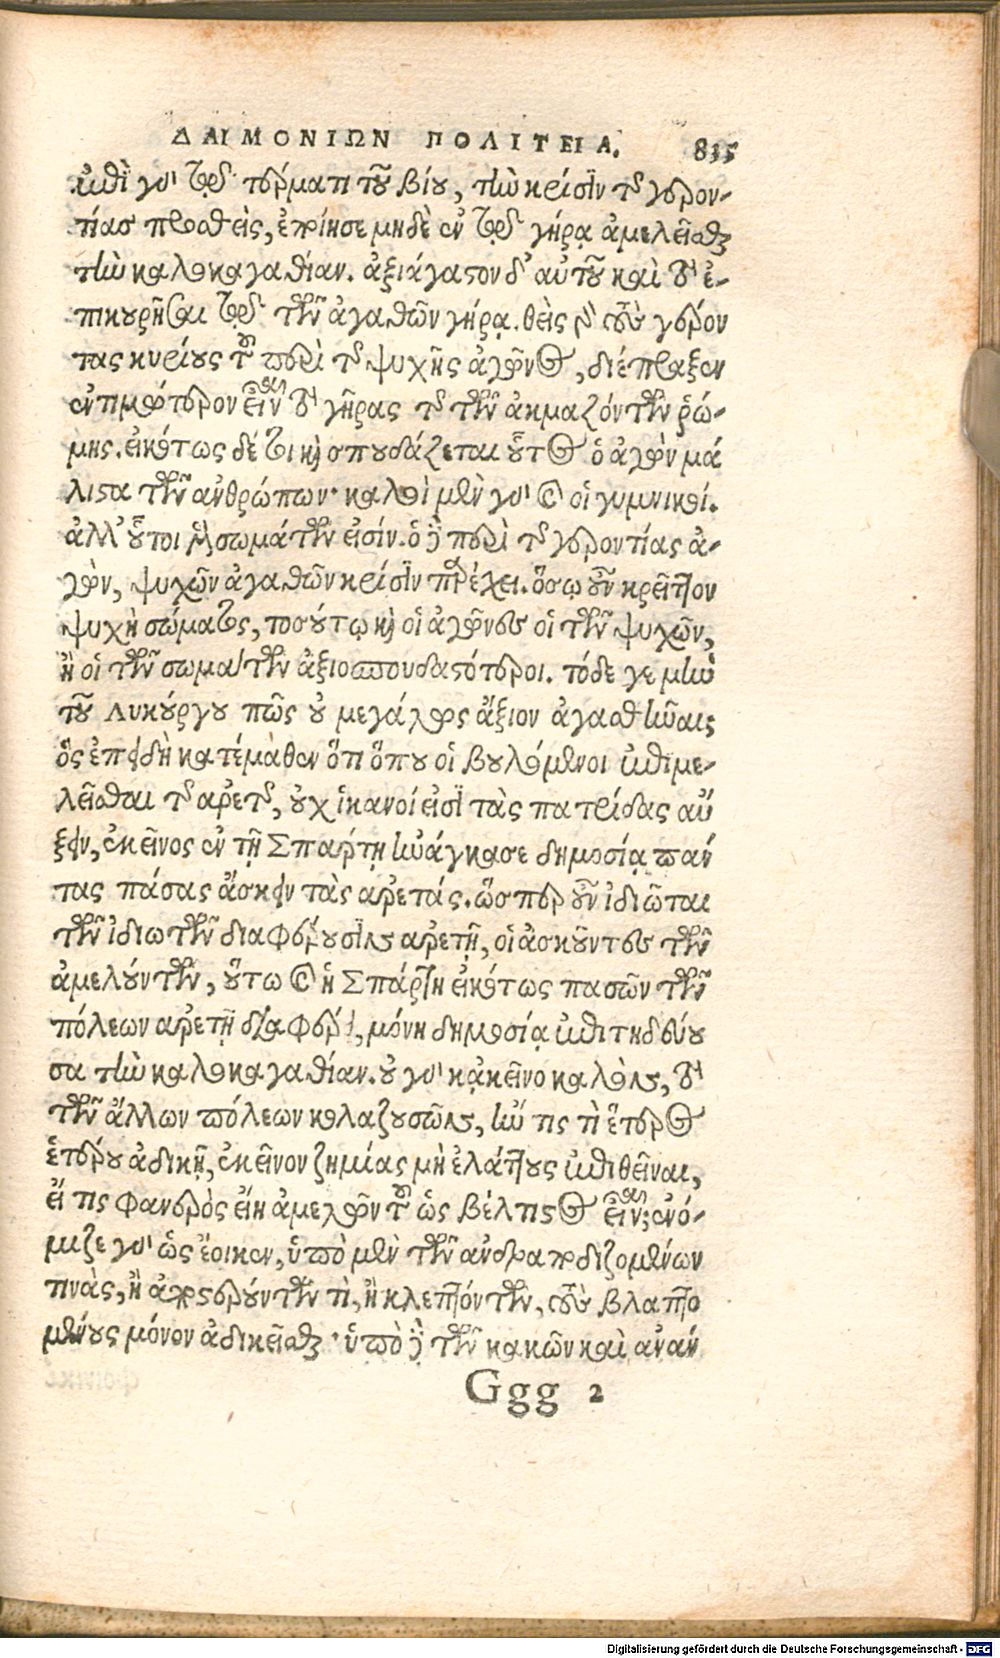 ΔΑΙΜΟΝΙΩΝ ΠΟΛΙΤΕΙΑ. 835
ἐπὶ γὰρ τῷ τέρματι τοῦ βίου, τὴν κρίσιν τῆς γερον-
τίας προσθεὶς, ἐποίησε μηδὲ ἐν τῷ γήρᾳ ἀμελεῖσθαι
τὴν καλοκαγαθίαν. ἀξιάγαστον δ' αὐτοῦ καὶ τὸ ἐ-
πικουρῆσαι τῷ τῶν ἀγαθῶν γήρᾳ. θεὶς γὰρ τοὺς γέρον
τας κυρίους τοῦ περὶ τῆς ψυχῆς ἀγῶνος, διέπραξεν
ἐντιμότερον εἶναι τὸ γῆρας τῆς τῶν ἀκμαζόντων ῥώ-
μης. εἰκότως δέ τοι καὶ σπουδάζεται οὗτος ὁ ἀγὼν μά
λιστα τῶν ἀνθρώπων· καλοὶ μὲν γὰρ καὶ οἱ γυμνικοί.
ἀλλ' οὗτοι μὲν σωμάτων εἰσίν. ὁ δὲ περὶ τῆς γεροντίας ἀ-
γὼν, ψυχῶν ἀγαθῶν κρίσιν παρέχει. ὅσῳ οὖν κρεῖττον
ψυχὴ σώματος, τοσούτῳ καὶ οἱ ἀγῶνες οἱ τῶν ψυχῶν,
ἢ οἱ τῶν σωμάτων ἀξιοσπουδαστότεροι. τόδε γε μὴν
τοῦ Λυκούργου πῶς οὐ μεγάλως ἄξιον ἀγασθῆναι;
ὃς ἐπειδὴ κατέμαθεν ὅτι ὅπου οἱ βουλόμενοι ἐπιμε-
λεῖσθαι τῆς ἀρετῆς, οὐχ ἱκανοί εἰσι τὰς πατρίδας αὔ
ξειν, ἐκεῖνος ἐν τῇ Σπάρτῃ ἠνάγκασε δημοσίᾳ πάν
τας πάσας ἄσκειν τὰς ἀρετάς. ὥσπερ οὖν ἰδιῶται
τῶν ἰδιωτῶν διαφέρουσιν ἀρετῇ, οἱ ἀσκοῦντες τῶν
ἀμελούντων, οὕτω καὶ ἡ Σπάρτη εἰκότως πασῶν τῶν
πόλεων ἀρετῇ διαφέρει, μόνη δημοσίᾳ ἐπιτηδεύου
σα τὴν καλοκαγαθίαν. οὐ γὰρ κᾀκεῖνο καλὸν, τὸ
τῶν ἄλλων πόλεων κολαζουσῶν, ἤν τις τὶ ἕτερος
ἑτέρου ἀδικῇ, ἐκεῖνον ζημίας μὴ ἐλάττους ἐπιθεῖναι,
εἴ τις φανερὸς εἴη ἀμελῶν τοῦ ὡς βέλτιστος εἶναι; ἐνό-
μιζε γὰρ ὡς ἔοικεν, ὑπὸ μὲν τῶν ἀνδραποδιζομένων
τινὰς, ἢ ἀποστερούντων τὶ, ἢ κλεπτόντων, τοὺς βλαπτο
μένους μόνον ἀδικεῖσθαι· ὑπὸ δὲ τῶν κακῶν καὶ ἀνάν
Ggg 2
Digitalisierung gefördert durch die Deutsche Forschungsgemeinschaft - DFG